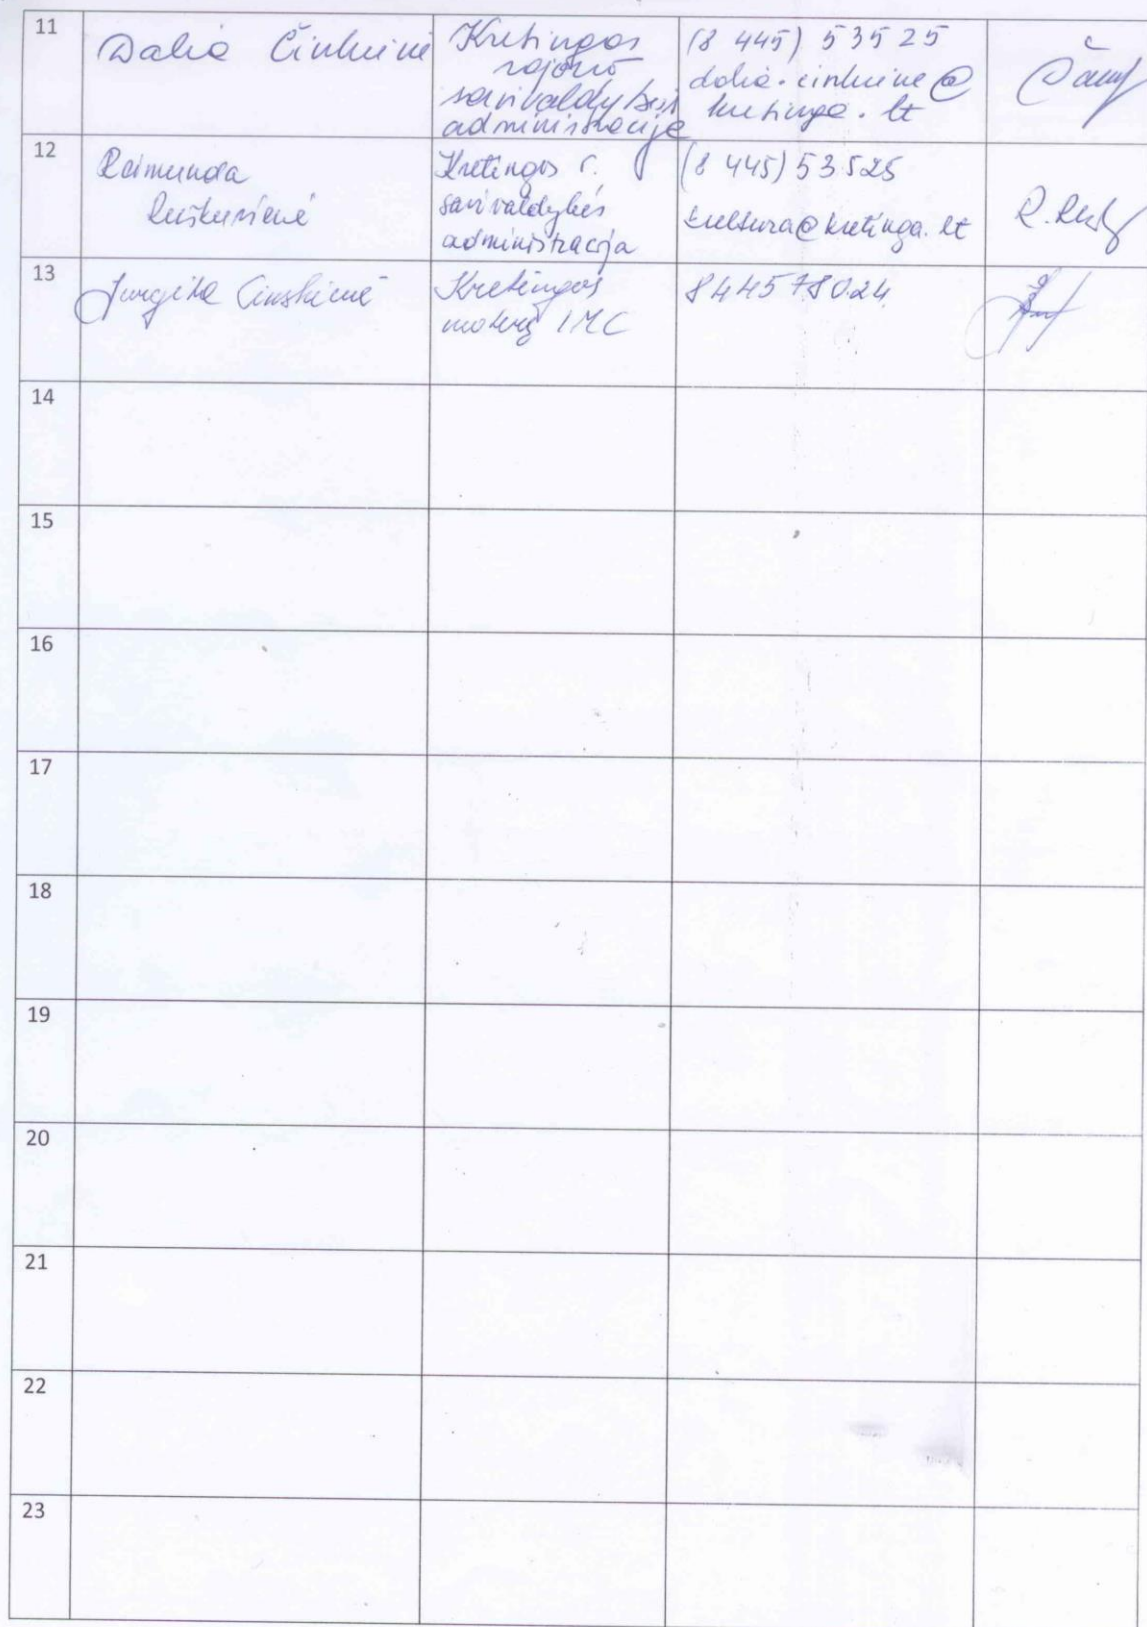 11
Dalia Činkienė
Kretingos
rajono
savivaldybės
administracija
(8 445) 53525
dalia.cinkiene@
kretinga.lt
12
Raimunda
Kretingos r.
savivaldybės
administracija
(8 445) 53525
kultura@kretinga.lt
13
Jurgita
Kretingos
moterų IMC
844578024
14
15
16
17
18
19
20
21
22
23